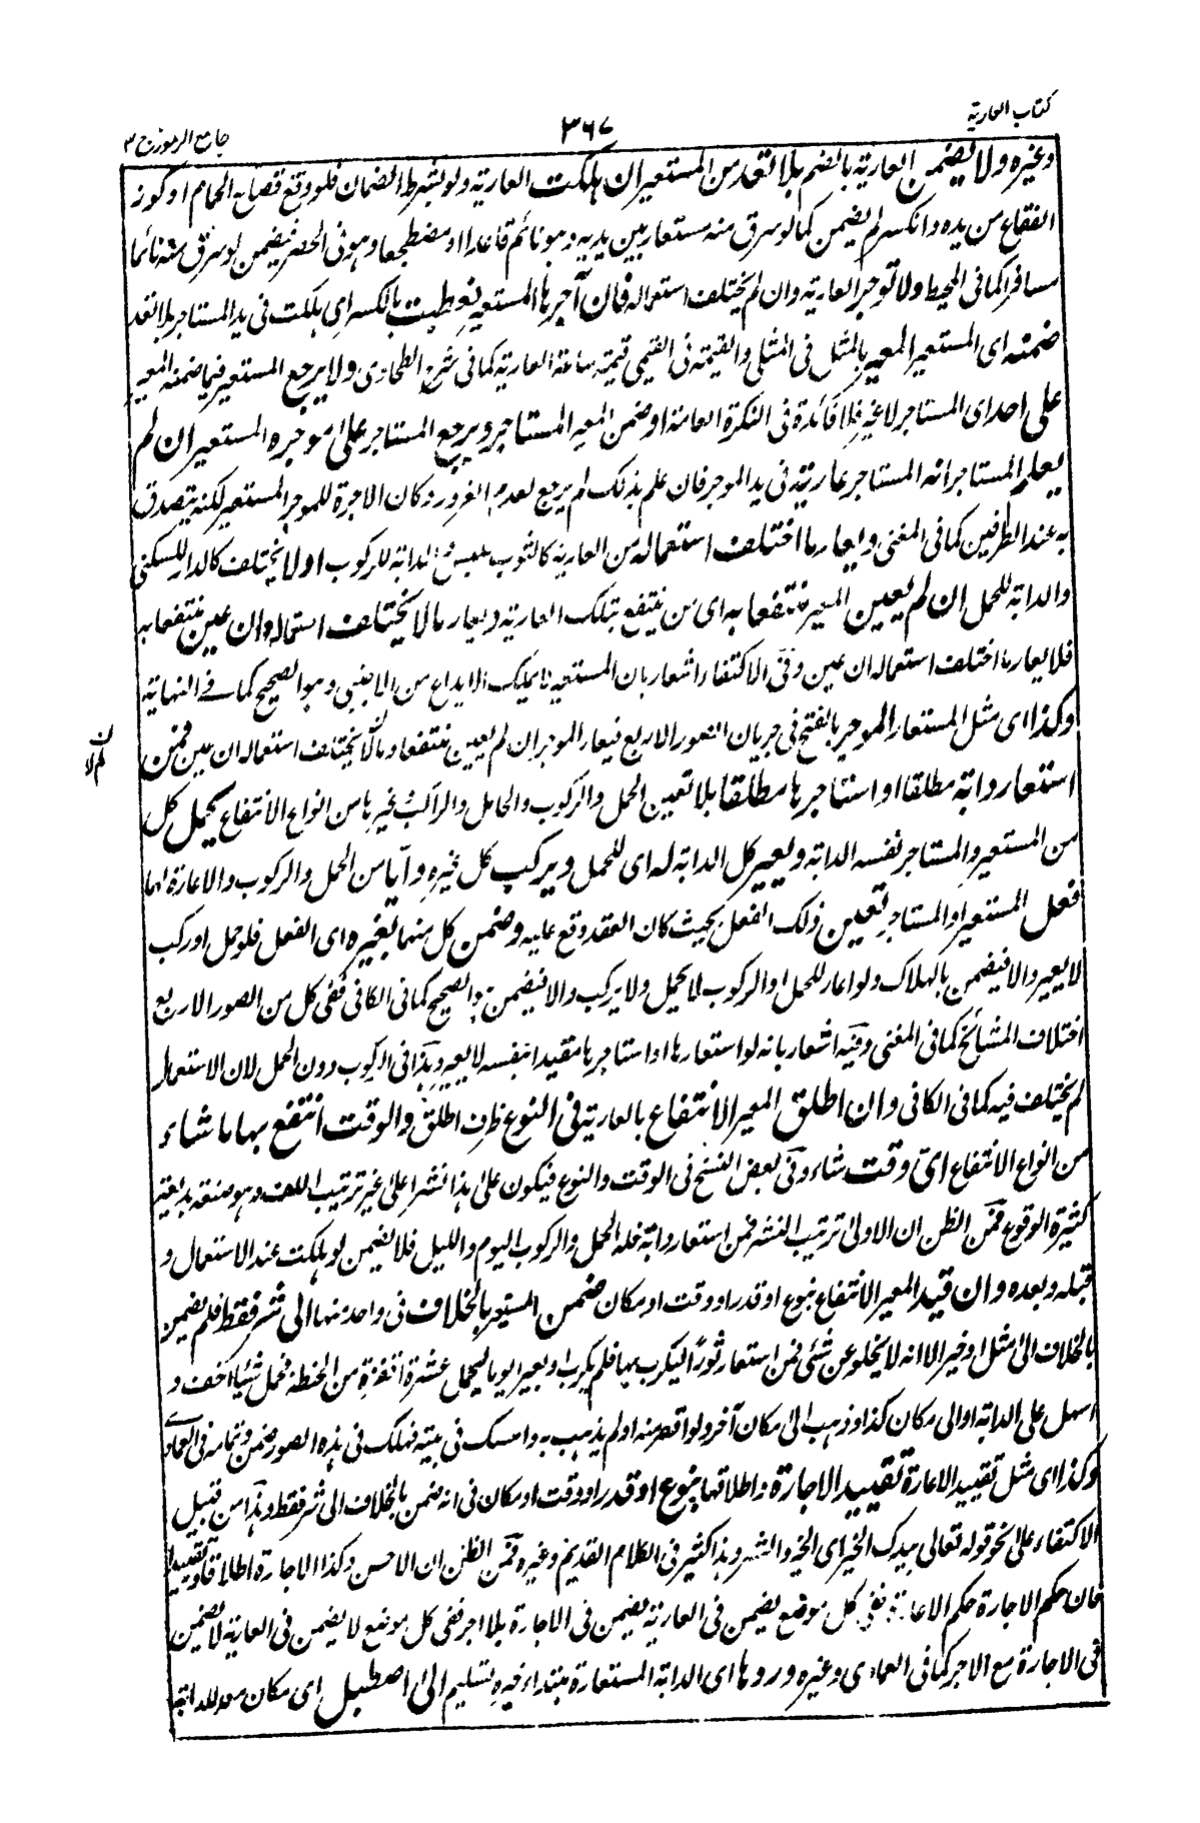 كتاب العارية
٣٦٧
جامع الرموز ج ٣
وغيره ولا يضمن العارية بالضم بلا تعد من المستعير ان هلكت العارية ولو بشرط الضمان فلو وقع قصاع الحمام او كوز
الفقاع من يده وانكسر لم يضمن كما لو سرق منه مستعار بين يديه وهو نائم قاعدا او مضطجعا وهو فى الحضر فيضمن لو سرق منه نائما
مسافرا كما فى المحيط ولا توجر العارية وان لم يختلف استعماله فان آجرها المستعير فعطبت بالكسر اى هلكت فى يد المستاجر بلا تعد
ضمنه اى المستعير المعير بالمثل فى المثلى والقيمة فى القيمى قيمة ساعة العارية كما فى شرح الطحاوى ولا يرجع المستعير فيما ضمنه المعير
على احد اى المستاجر لا غير فلا فائدة فى النكرة العامة او ضمن المعير المستاجر ويرجع المستاجر على موجره المستعير ان لم
يعلم المستاجر انه المستاجر عارية فى يد الموجر فان علم بذلك لم يرجع لعدم الغرور وكان الاجرة للموجر المستعير لكنه يتصدق
به عند الطرفين كما فى المغنى ويعار ما اختلف استعماله من العارية كالثوب للبس والدابة للركوب او لا يختلف كالدار للسكنى
والدابة للحمل ان لم يعين المعير منتفعا به اى من ينتفع بتلك العارية ويعار ما لا يختلف استعماله وان عين منتفعا به
فلا يعار ما اختلف استعماله ان عين وفى الاكتفاء اشعار بان المستعير لا يملك الايداع من الاجنبى وهو الصحيح كما فى النهاية
وكذا اى مثل المستعار الموجر بالفتح فى جريان الصور الاربع فيعار الموجر ان لم يعين منتفعا وما لا يختلف استعماله ان عين فمن
استعار دابة مطلقا او استاجرها مطلقا بلا تعين الحمل والركوب والحامل والراكب غيرها من انواع الانتفاع يحمل كل
من المستعير والمستاجر نفسه الدابة ويعير كل الدابة له اى للحمل ويركب كل غيره وايا من الحمل والركوب والاعارة لهما
فعل المستعير او المستاجر تعين ذلك الفعل بحيث كان العقد وقع عليه وضمن كل منهما بغيره اى الفعل فلو حمل او ركب
لا يعير والا فيضمن بالهلاك ولو اعار للحمل او الركوب لا يحمل ولا يركب والا فيضمن هو الصحيح كما فى الكافى ففى كل من الصور الاربع
اختلاف المشائخ كما فى المغنى وفيه اشعار بانه لو استعارها او استاجرها مقيدا بنفسه لا يعير وهذا فى الركوب دون الحمل لان الاستعمال
لم يختلف فيه كما فى الكافى وان اطلق المعير الانتفاع بالعارية فى النوع ظرف اطلق والوقت انتفع بها ما شاء
من انواع الانتفاع اى وقت شاء وفى بعض النسخ فى الوقت والنوع فيكون على هذا نشرا على غير ترتيب اللف وهو صنعة بديعية
كثيرة الوقوع فمن الظن ان الاولى ترتيب النشر فمن استعار دابة فله الحمل والركوب اليوم والليل فلا يضمن لو هلكت عند الاستعمال و
قبله وبعده وان قيد المعير الانتفاع بنوع او قدر او وقت او مكان ضمن المستعير بالخلاف فى واحد منها الى شر فقط فلم يضمن
بالخلاف الى مثل او خير الا انه لا يخلو عن شئى فمن استعار ثورا ليكرب بها فلم يكرب او بعيرا يوما ليحمل عشرة اقفزة من الحنطة فحمل شيئا اخف و
اسهل على الدابة او الى مكان كذا وذهب الى مكان آخر ولو اقصر منه او لم يذهب به وامسك فى بيته فهلك فى هذه الصور ضمن وتمامه فى العمادى
وكذا اى مثل تقييد الاعارة تقييد الاجارة واطلاقها بنوع او قدر او وقت او مكان فى انه يضمن بالخلاف الى شر فقط وهذا من قبيل
الاكتفاء على نحو قوله تعالى بيدك الخير اى الخير والشر وهذا كثير فى الكلام القديم وغيره فمن الظن ان الاحسن وكذا الاجارة اطلاقا وتقييدا
فان حكم الاجارة حكم الاعارة ففى كل موضع يضمن فى العارية يضمن فى الاجارة بلا اجر ففى كل موضع لا يضمن فى العارية لا يضمن
فى الاجارة مع الاجر كما فى العمادى وغيره وردها اى الدابة المستعارة مبتداء خبره تسليم الى اصطبل اى مكان معد للدابة